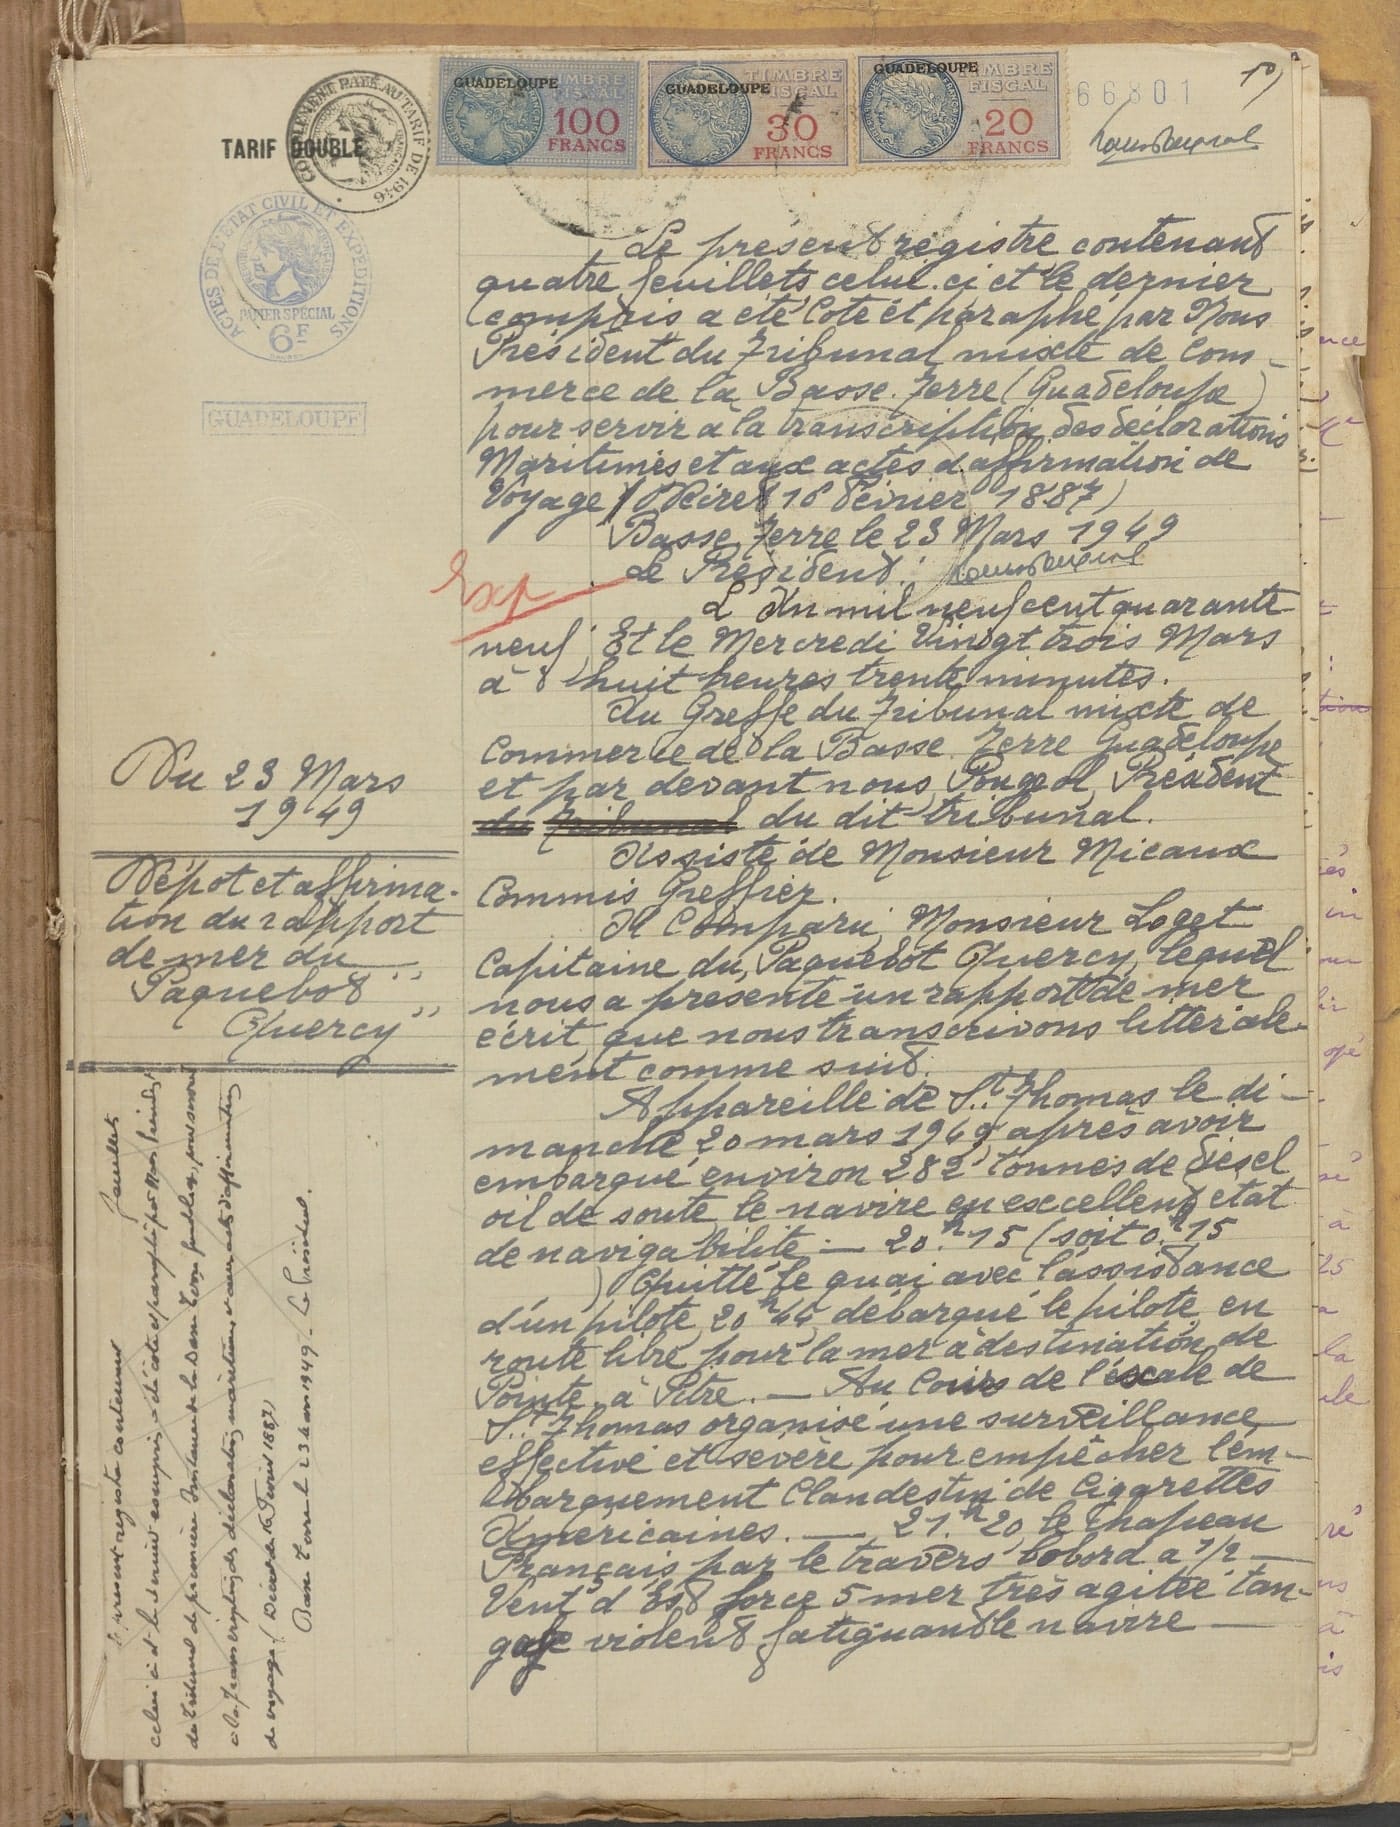 TARIF DOUBLE
COMPLEMENT PAYE AU TARIF DE 1946
GUADELOUPE
TIMBRE
FISCAL
100
FRANCS
GUADELOUPE
TIMBRE
FISCAL
30
FRANCS
GUADELOUPE
TIMBRE
FISCAL
20
FRANCS
66801
ACTES DE L'ETAT CIVIL ET EXPEDITIONS
PAPIER SPECIAL
6F
GUADELOUPE
Le présent registre contenant
quatre feuillets celui-ci et le dernier
compris a été coté et paraphé par Nous
Président du Tribunal mixte de Com-
merce de la Basse-Terre (Guadeloupe)
pour servir à la transcription des déclarations
Maritimes et aux actes d'affirmation de
Voyage (Décret 16 Février 1887)
Basse Terre le 23 Mars 1949
Le Président.
Exp
L'An mil neuf cent quarante
neuf Et le Mercredi Vingt trois Mars
à 8 huit heures trente minutes.
Au Greffe du Tribunal mixte de
Commerce de la Basse Terre Guadeloupe
et par devant nous, Pougol, Président
du Tribunal du dit tribunal.
Assisté de Monsieur Micaux
Commis Greffier.
A Comparu Monsieur Loget
Capitaine du Paquebot Quercy, lequel
nous a présenté un rapport de mer
écrit que nous transcrivons littérale-
ment comme suit.
Du 23 Mars
1949
Dépot et affirma-
tion du rapport
de mer du
"Paquebot
Quercy"
Appareillé de St. Thomas le di-
manche 20 mars 1949 après avoir
embarqué environ 282 tonnes de diesel
oil de soute le navire en excellent état
de navigabilité — 20.h 15 (soit 0.h 15
) Quitté le quai avec l'assistance
d'un pilote, 20h 44 débarqué le pilote, en
route libre pour la mer à destination de
Pointe à Pitre. — Au Cours de l'éscale de
St. Thomas organisé une surveillance
effective et sevère pour empêcher l'em-
barquement Clandestin de Cigarettes
Américaines. — 21.h 20 le Chapeau
Français par le travers bobord a 1/2 —
Vent d'Est force 5 mer très agitée tan-
gage violent fatiguant le navire —
Le présent registre contenant feuillets
celui ci et le dernier compris a été coté et paraphé par Nous
du Tribunal de première Instance de la Basse Terre pour servir
à la transcription des déclarations maritimes et aux acts d'affirmation
de voyage (Décret du 16 Février 1887)
Basse Terre le 23 Mars 1949 — Le Président.